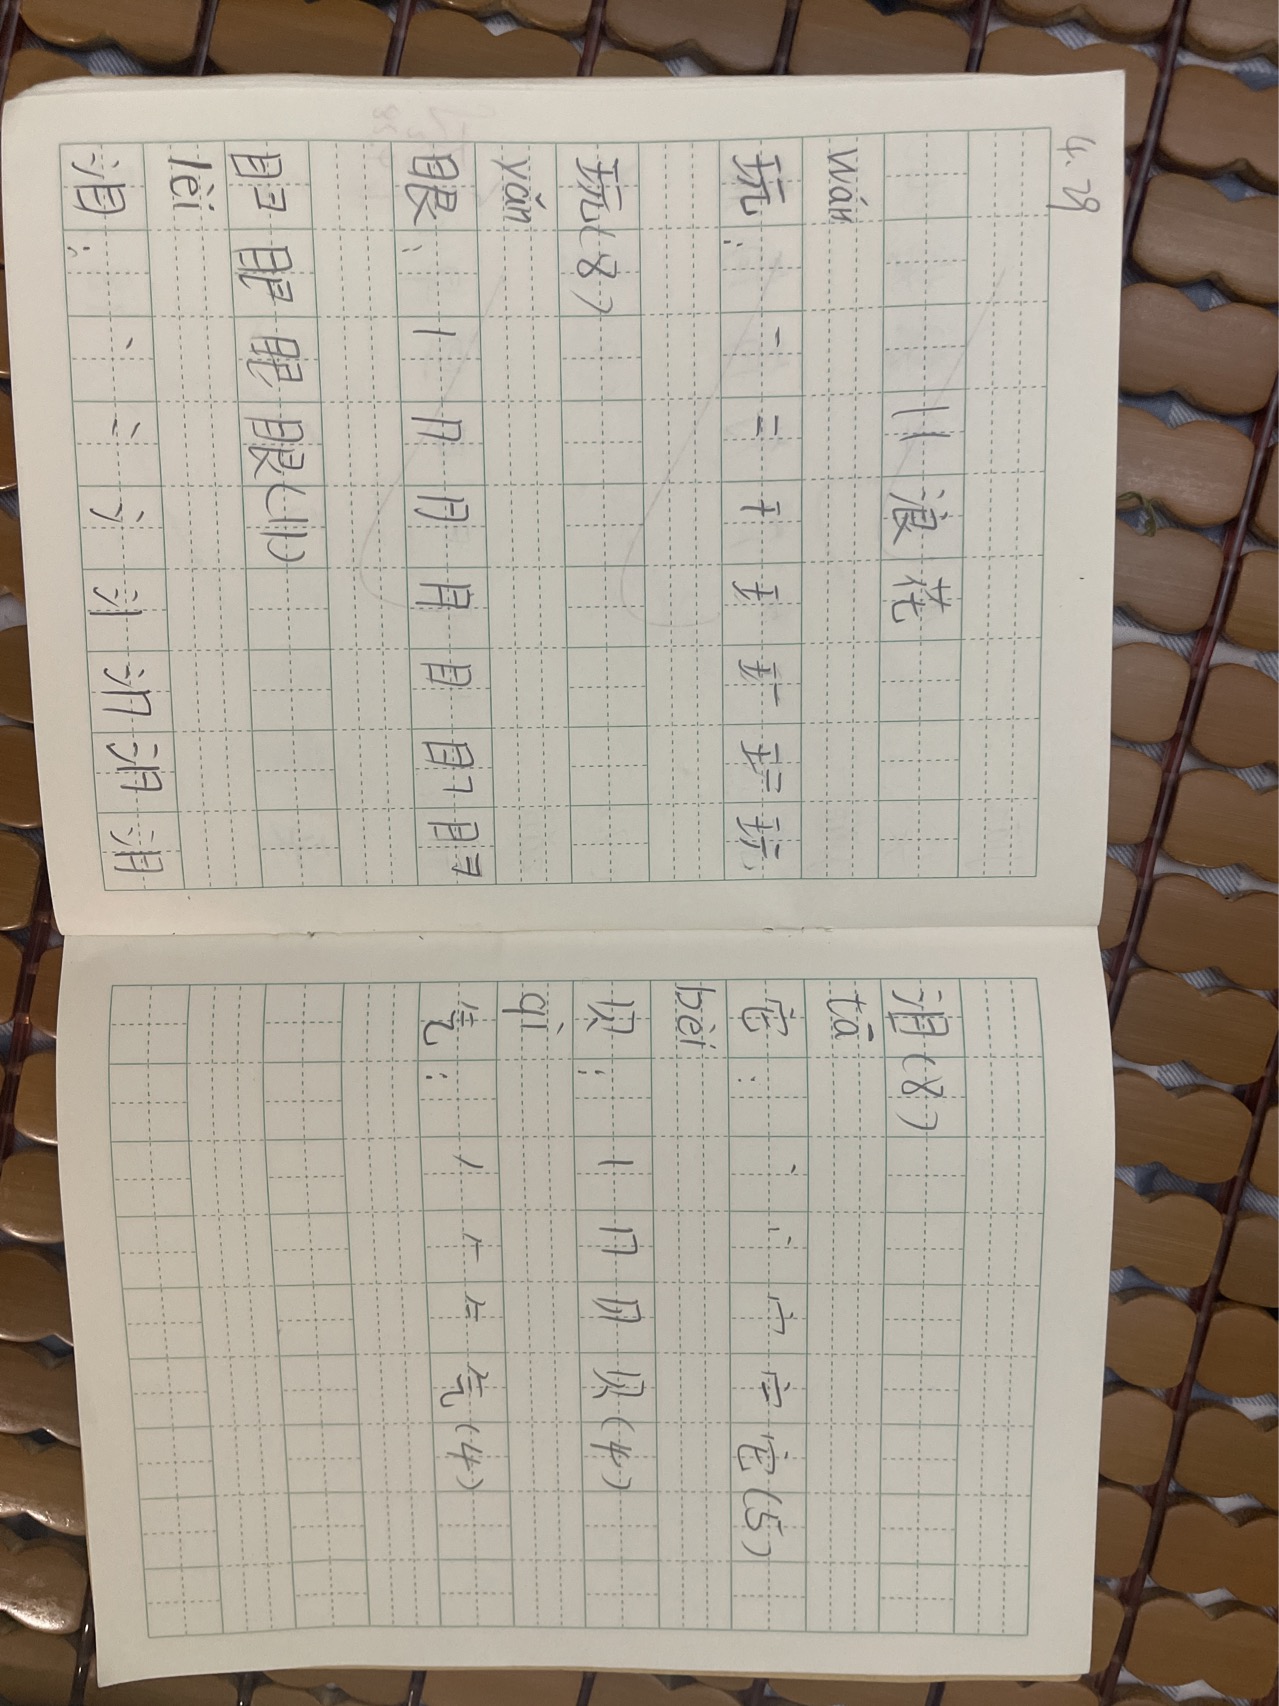 4.29
11 浪花
wán
玩: 一 二 干 王 王一 王二 玩
玩(8)
yǎn
眼: 丨 冂 月 月 目 目㇕ 目彐
目彐 眼 眼 眼(11)
lèi
泪: 丶 冫 氵 氵丨 氵冂 泪 泪
泪(8)
tā
它: 丶 丷 宀 它 它(5)
bèi
贝: 丨 冂 贝 贝(4)
qì
气: 丿 𠂉 𠂉 气(4)